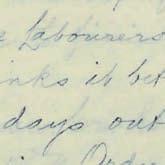 Labourers
inks it bet
days out